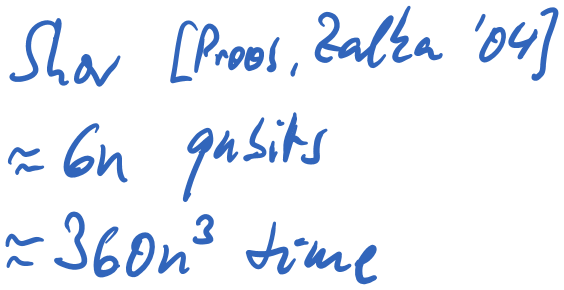 Shor [Proos, Zalka '04]
≈ 6n qubits
≈ 360n³ time